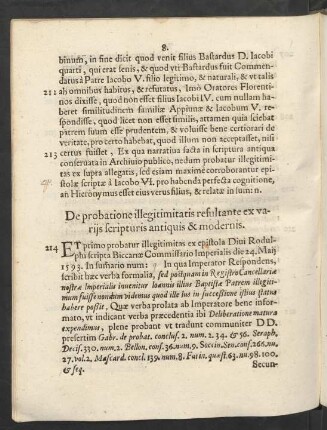 8.
binum, in fine dicit quod venit filius Bastardus D. Iacobi
quarti, qui erat senis, & quod vti Bastardus fuit Commen-
datus à Patre Iacobo V. filio legitimo, & naturali, & vt talis
212 ab omnibus habitus, & refutatus, Imò Oratores Florenti-
nos dixisse, quod non esset filius Iacobi IV. cum nullam ha-
beret similitudinem familiæ Appianæ & Iacobum V. re-
spondisse, quod licet non esset similis, attamen quia sciebat
patrem suum esse prudentem, & voluisse bene certiorari de
veritate, pro certo habebat, quod illum non acceptasset, nisi
213 certus fuisset, Ex qua narratiua facta in scriptura antiqua
conseruata in Archiuio publico, nedum probatur illegitimi-
tas ex supra allegatis, sed etiam maximè corroborantur epi-
stolæ scriptæ à Iacobo VI. pro habenda perfecta cognitione,
an Hieronymus esset eius verus filius, & relatæ in sum: n.
De probatione illegitimitatis resultante ex va-
rijs scripturis antiquis & modernis.
214 ET primo probatur illegitimitas ex epistola Diui Rodul-
phi scripta Biccaræ Commissario Imperialis die 24. Maij
1593. In sumario num: 7 In qua Imperator Respondens,
scribit hæc verba formalia, sed postquam in Registro Cancellariæ
nostræ Imperialis inuenitur Ioannis illius Baptistæ Patrem illegiti-
mum fuisse nondum videmus quod ille hoc in successione istius status
habere possit, Quæ verba prolata ab Imperatore bene infor-
mato, vt indicant verba præcedentia ibi Deliberatione matura
expendimus, plene probant vt tradunt communiter DD.
presertim Gabr. de probat. conclus. 2. num. 2. 34. & 56. Seraph.
Decis. 330. num. 2. Bellon. cons. 36. num. 9. Soccin. Sen. cons. 266. nu.
27. vol. 2. Mascard. concl. 139. num. 8. Farin. quæst. 63. nu. 98. 100.
& seq.
Secun-